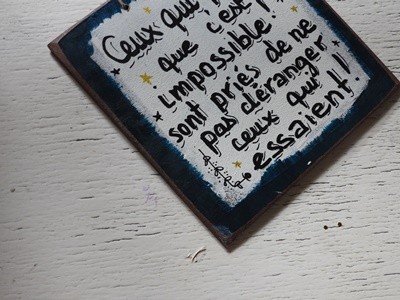 Ceux qui
que c'est
impossible
sont priés de ne
pas déranger
ceux qui
essaient!!